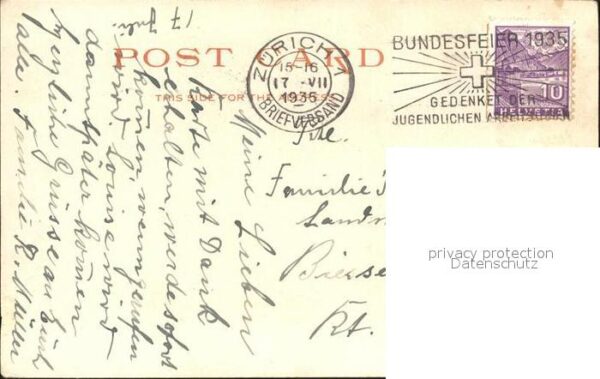 17 Juli
POST CARD
THIS SIDE FOR THE ADDRESS
ZÜRICH 1
15-16
17.-VII
1935
BRIEFVERSAND
BUNDESFEIER 1935
GEDENKET DER
JUGENDLICHEN ARBEITSLOSEN
10
HELVETIA
Meine Lieben
Karte mit Dank
erhalten, werde sofort
kommen, wenn gerufen
wird. Louise wird
dann später kommen
herzliche Grüsse an Euch
alle. Familie R. Müller
Familie
Landw
Kt.
privacy protection
Datenschutz